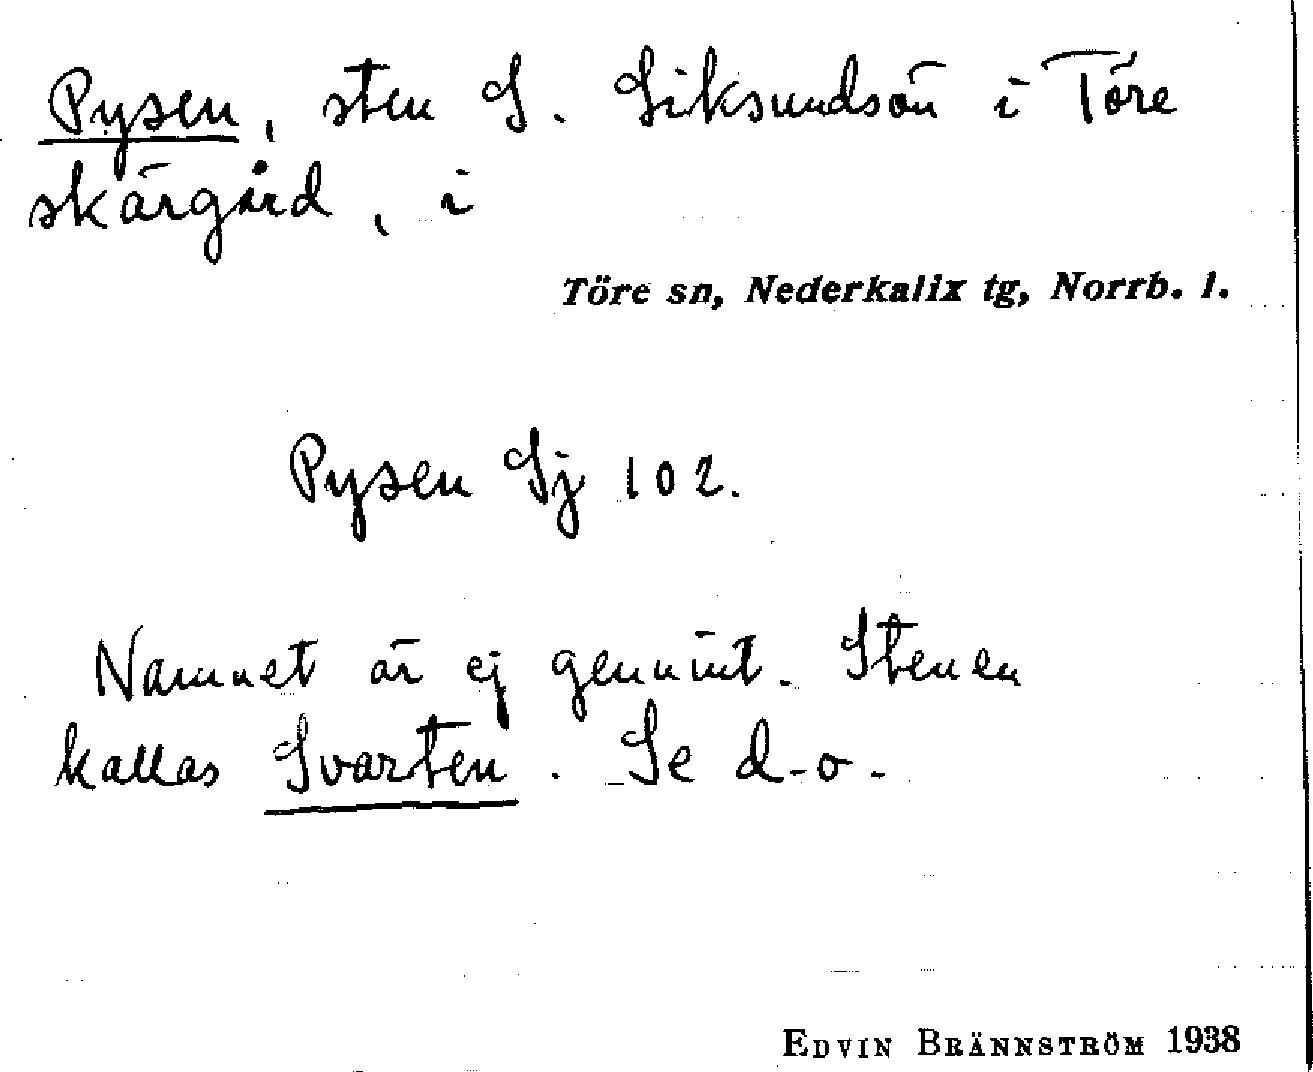 Pysen, sten S. Siksundsön i Töre
skärgård, i
Töre sn, Nederkalix tg, Norrb. l.
Pysen Sj 102.
Namnet är ej genuint. Stenen
kallas Svarten. Se d-o-
EDVIN BRÄNNSTRÖM 1938